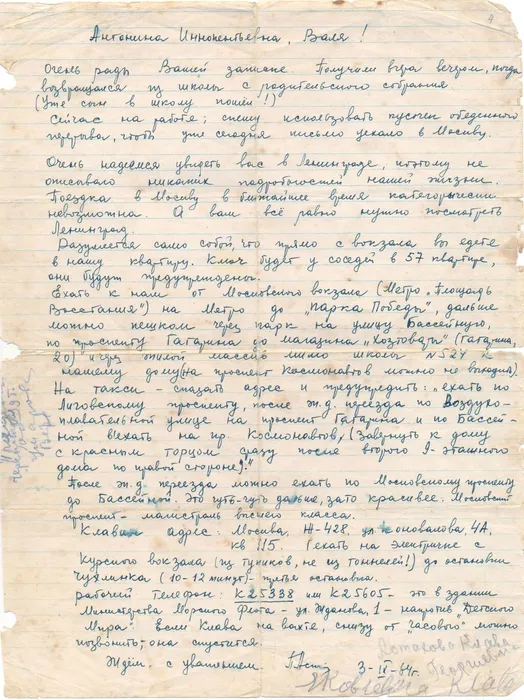 4
Антонина Иннокентьевна, Валя!
Очень рады Вашей записке. Получили вчера вечером, когда
возвращался из школы с родительского собрания
(Уже сын в школу пошел!)
Сейчас на работе; спешу использовать кусочек обеденного
перерыва, чтобы уже сегодня письмо уехало в Москву.
Очень надеемся увидеть вас в Ленинграде, поэтому не
описываю никаких подробностей нашей жизни.
Поездка в Москву в ближайшее время категорически
невозможна. А вам всё равно нужно посмотреть
Ленинград.
Разумеется само собой, что прямо с вокзала вы едете
в нашу квартиру. Ключ будет у соседей в 57 квартире,
они будут предупреждены.
Ехать к нам от Московского вокзала (Метро „Площадь
Восстания") на Метро до „Парка Победы", дальше
можно пешком через парк на улицу Бассейную,
по проспекту Гагарина до магазина „Хозтовары" (Гагарина,
20) и через жилой массив мимо школы №524 к
нашему дому (на проспект Космонавтов можно не выходить).
На такси – сказать адрес и предупредить: „ехать по
Лиговскому проспекту, после ж.д. переезда по Воздухо-
плавательной улице на проспект Гагарина и по Бассей-
ной въехать на пр. Космонавтов, (Завернуть к дому
с красным торцом сразу после второго 9-этажного
дома по правой стороне)."
После ж.д. переезда можно ехать по Московскому проспекту
до Бассейной. Это чуть-чуть дальше, зато красивее: Московский
проспект – магистраль высшего класса.
Клавин адрес: Москва, Ж-428, ул. Коновалова, 4А,
кв 115. Ехать на электричке с
Курского вокзала (из тупиков, не из тоннелей!) до остановки
Чухлинка (10-12 минут) – третья остановка.
рабочий телефон: К25338 или К25605 – это в здании
Министерства Морского Флота – ул. Жданова, 1 – напротив „Детского
Мира". Если Клава на вахте, снизу от "часового" можно
позвонить, она спустится.
Ждём. с уважением 3-IX-64г.
Астахова Клава
Георгиевна
Яковлевна Клав